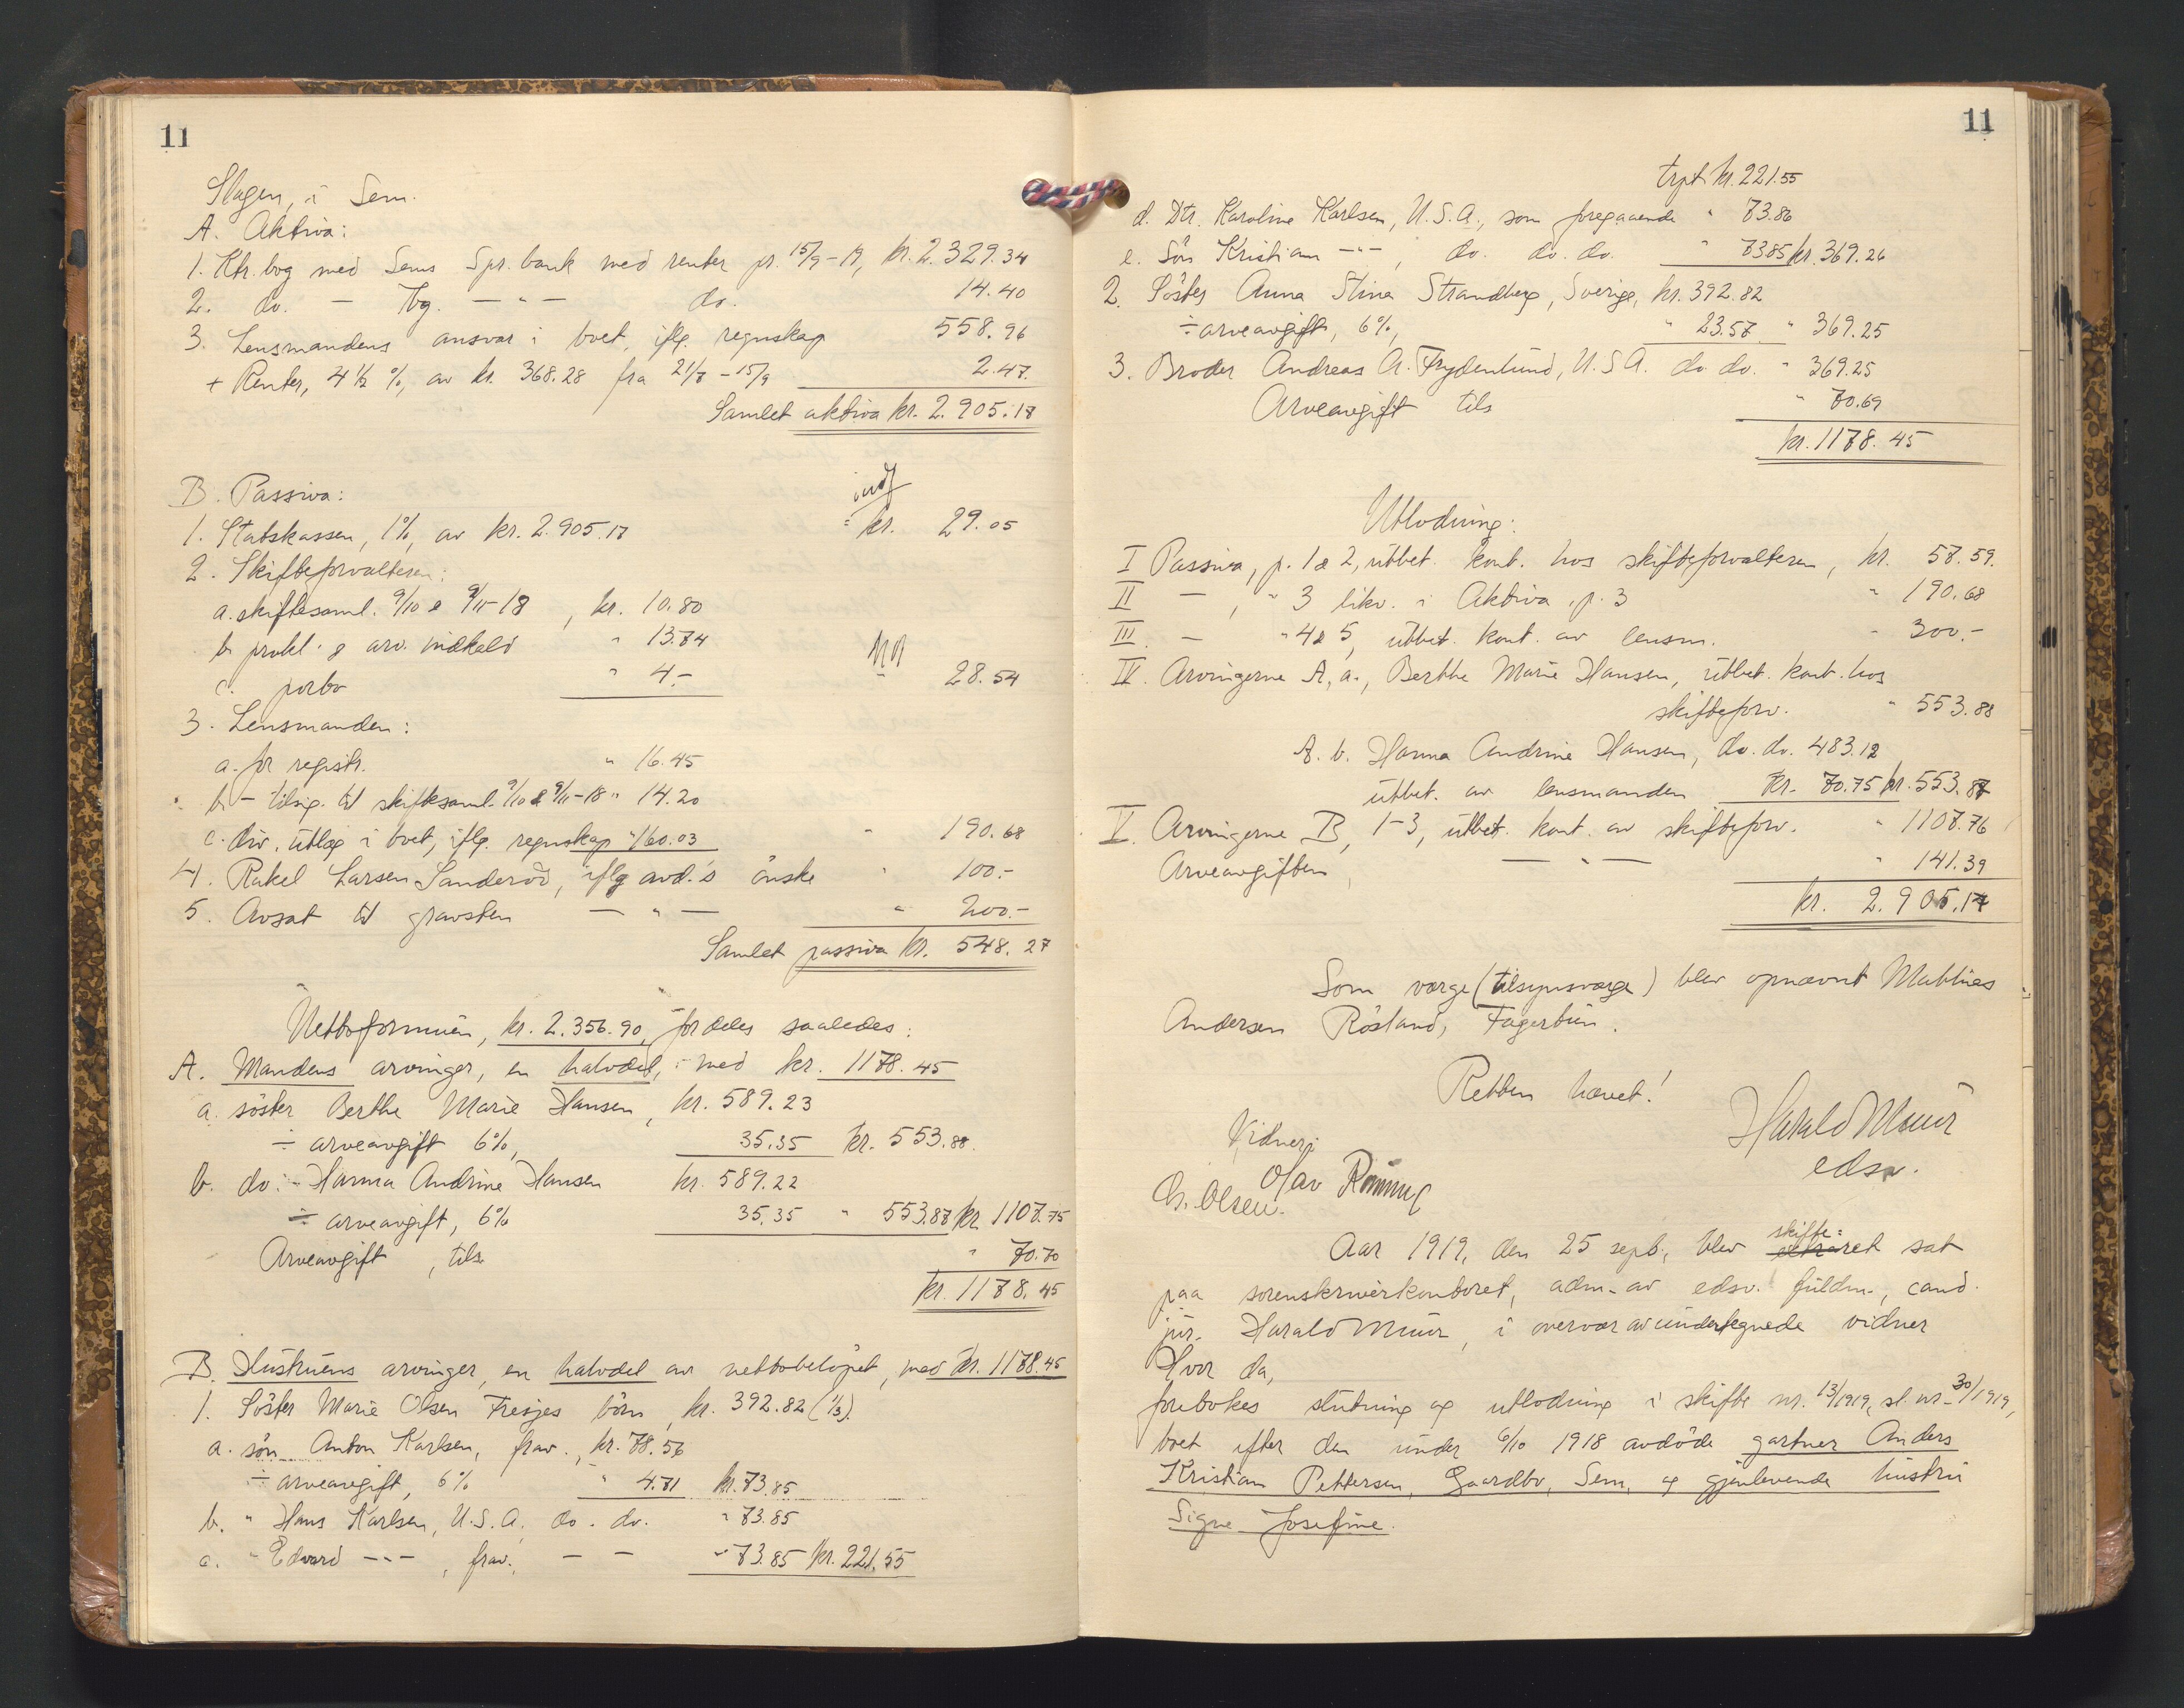 11
Slagen, i Sem.
A. Aktiva:
1. Ktr. bog med Sems Spr. bank med renter pr. 15/9-19, kr. 2.329.34
2. do. - Tbg. - " - do. 14.40
3. Lensmandens ansvar i boet, iflg. regnskap 558.96
+ Renter, 4 1/2 %, av kr. 368.28 fra 21/7 - 15/9 2.47.
Samlet aktiva kr. 2.905.17
B. Passiva:
1. Statskassen, 1%, av kr. 2.905.17 kr. 29.05
2. Skifteforvalteren:
a. skiftesaml. 9/10 & 9/11-18, kr. 10.80
b. prokl. & arv. indkald " 13.74
c. porto " 4.- 28.54
3. Lensmanden:
a. for registr. " 16.45
b. - tilsig. til skiftesaml. 9/10 & 9/11-18 " 14.20
c. div. utlæg i boet, iflg. regnskap " 160.03 " 190.68
4. Rakel Larsen Sanderød, iflg avd.'s ønske " 100.-
5. Avsat til gravsten - " - " 200.-
Samlet passiva kr. 548.27
Nettoformuen, kr. 2.356.90, fordeles saaledes:
A. Mandens arvinger, en halvdel, med kr. 1178.45
a. søster Berthe Marie Hansen, kr. 589.23
÷ arveavgift 6%, 35.35 kr. 553.88.
b. do. - Hanna Andrine Hansen kr. 589.22
÷ arveavgift, 6% 35.35 " 553.87 kr. 1107.75
Arveavgift, tils. " 70.70
kr. 1178.45
B. Hustruens arvinger, en halvdel av nettobeløpet, med kr. 1178.45
1. Søster Marie Olsen Tresjes børn, kr. 392.82 (1/3).
a. søn Anton Karlsen, frav., kr. 78.56
÷ arveavgift, 6% " 4.71 kr. 73.85
b. " Hans Karlsen, U.S.A. do. do. " 73.85
c. " Edvard - " -, frav., - - " 73.85 kr. 221.55
11
trpt. kr. 221.55
d. Dtr. Karoline Karlsen, U.S.A., som foregaaende " 73.86
e. Søn Kristian - " -, do. do. do. " 73.85 kr. 369.26
2. Søster Anna Stina Strandberg, Sverige, kr. 392.82
÷ arveavgift, 6%, " 23.57 " 369.25
3. Broder Andreas A. Frydenlund, U.S.A. do. do. " 369.25
Arveavgift tils " 70.69
kr. 1178.45
Utlodning:
I Passiva, p. 1 & 2, utbet. kont. hos skifteforvalteren, kr. 57.59.
II - , " 3 likv. i Aktiva p. 3 " 190.68
III. - " 4 & 5, utbet. kont. av lensm. " 300.-
IV. Arvingerne A, a., Berthe Marie Hansen, utbet. kont. hos
skifteforv. " 553.88
A. b. Hanna Andrine Hansen, do. do. 483.12
utbet. av lensmanden kr. 70.75 kr. 553.87
V. Arvingerne B, 1-3, utbet. kont. av skifteforv. " 1107.76
Arveavgiften, - " - " 141.39
kr. 2.905.17
Som verge (tilsynsverge) blev opnævnt Mathias
Andersen Røsland, Fagertun.
Retten hævet!
Harald Muur
edsv.
Vidner:
Olav Rønning
Ch. Olsen.
Aar 1919, den 25 sept., blev skifte= ekstraret sat
paa sorenskriverkontoret, adm. av edsv. fuldm., cand.
jur. Harald Muur, i overvær av undertegnede vidner
Hvor da,
foretokes slutning og utlodning i skifte nr. 13/1919, sl. nr. 30/1919,
boet efter den under 6/10 1918 avdøde gartner Anders
Kristian Pettersen, Gaardbo, Sem, og gjenlevende hustru
Signe Josefine.